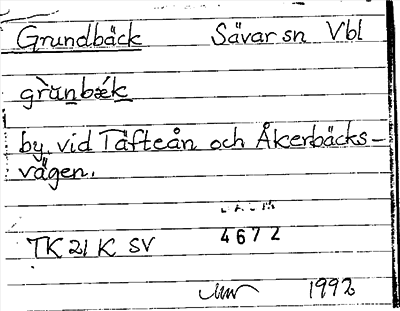 Grundbäck Sävar sn Vbl
grùnbǽk
by vid Täfteån och Åkerbäcks-
vägen.
TK 21 K SV 4672
1992